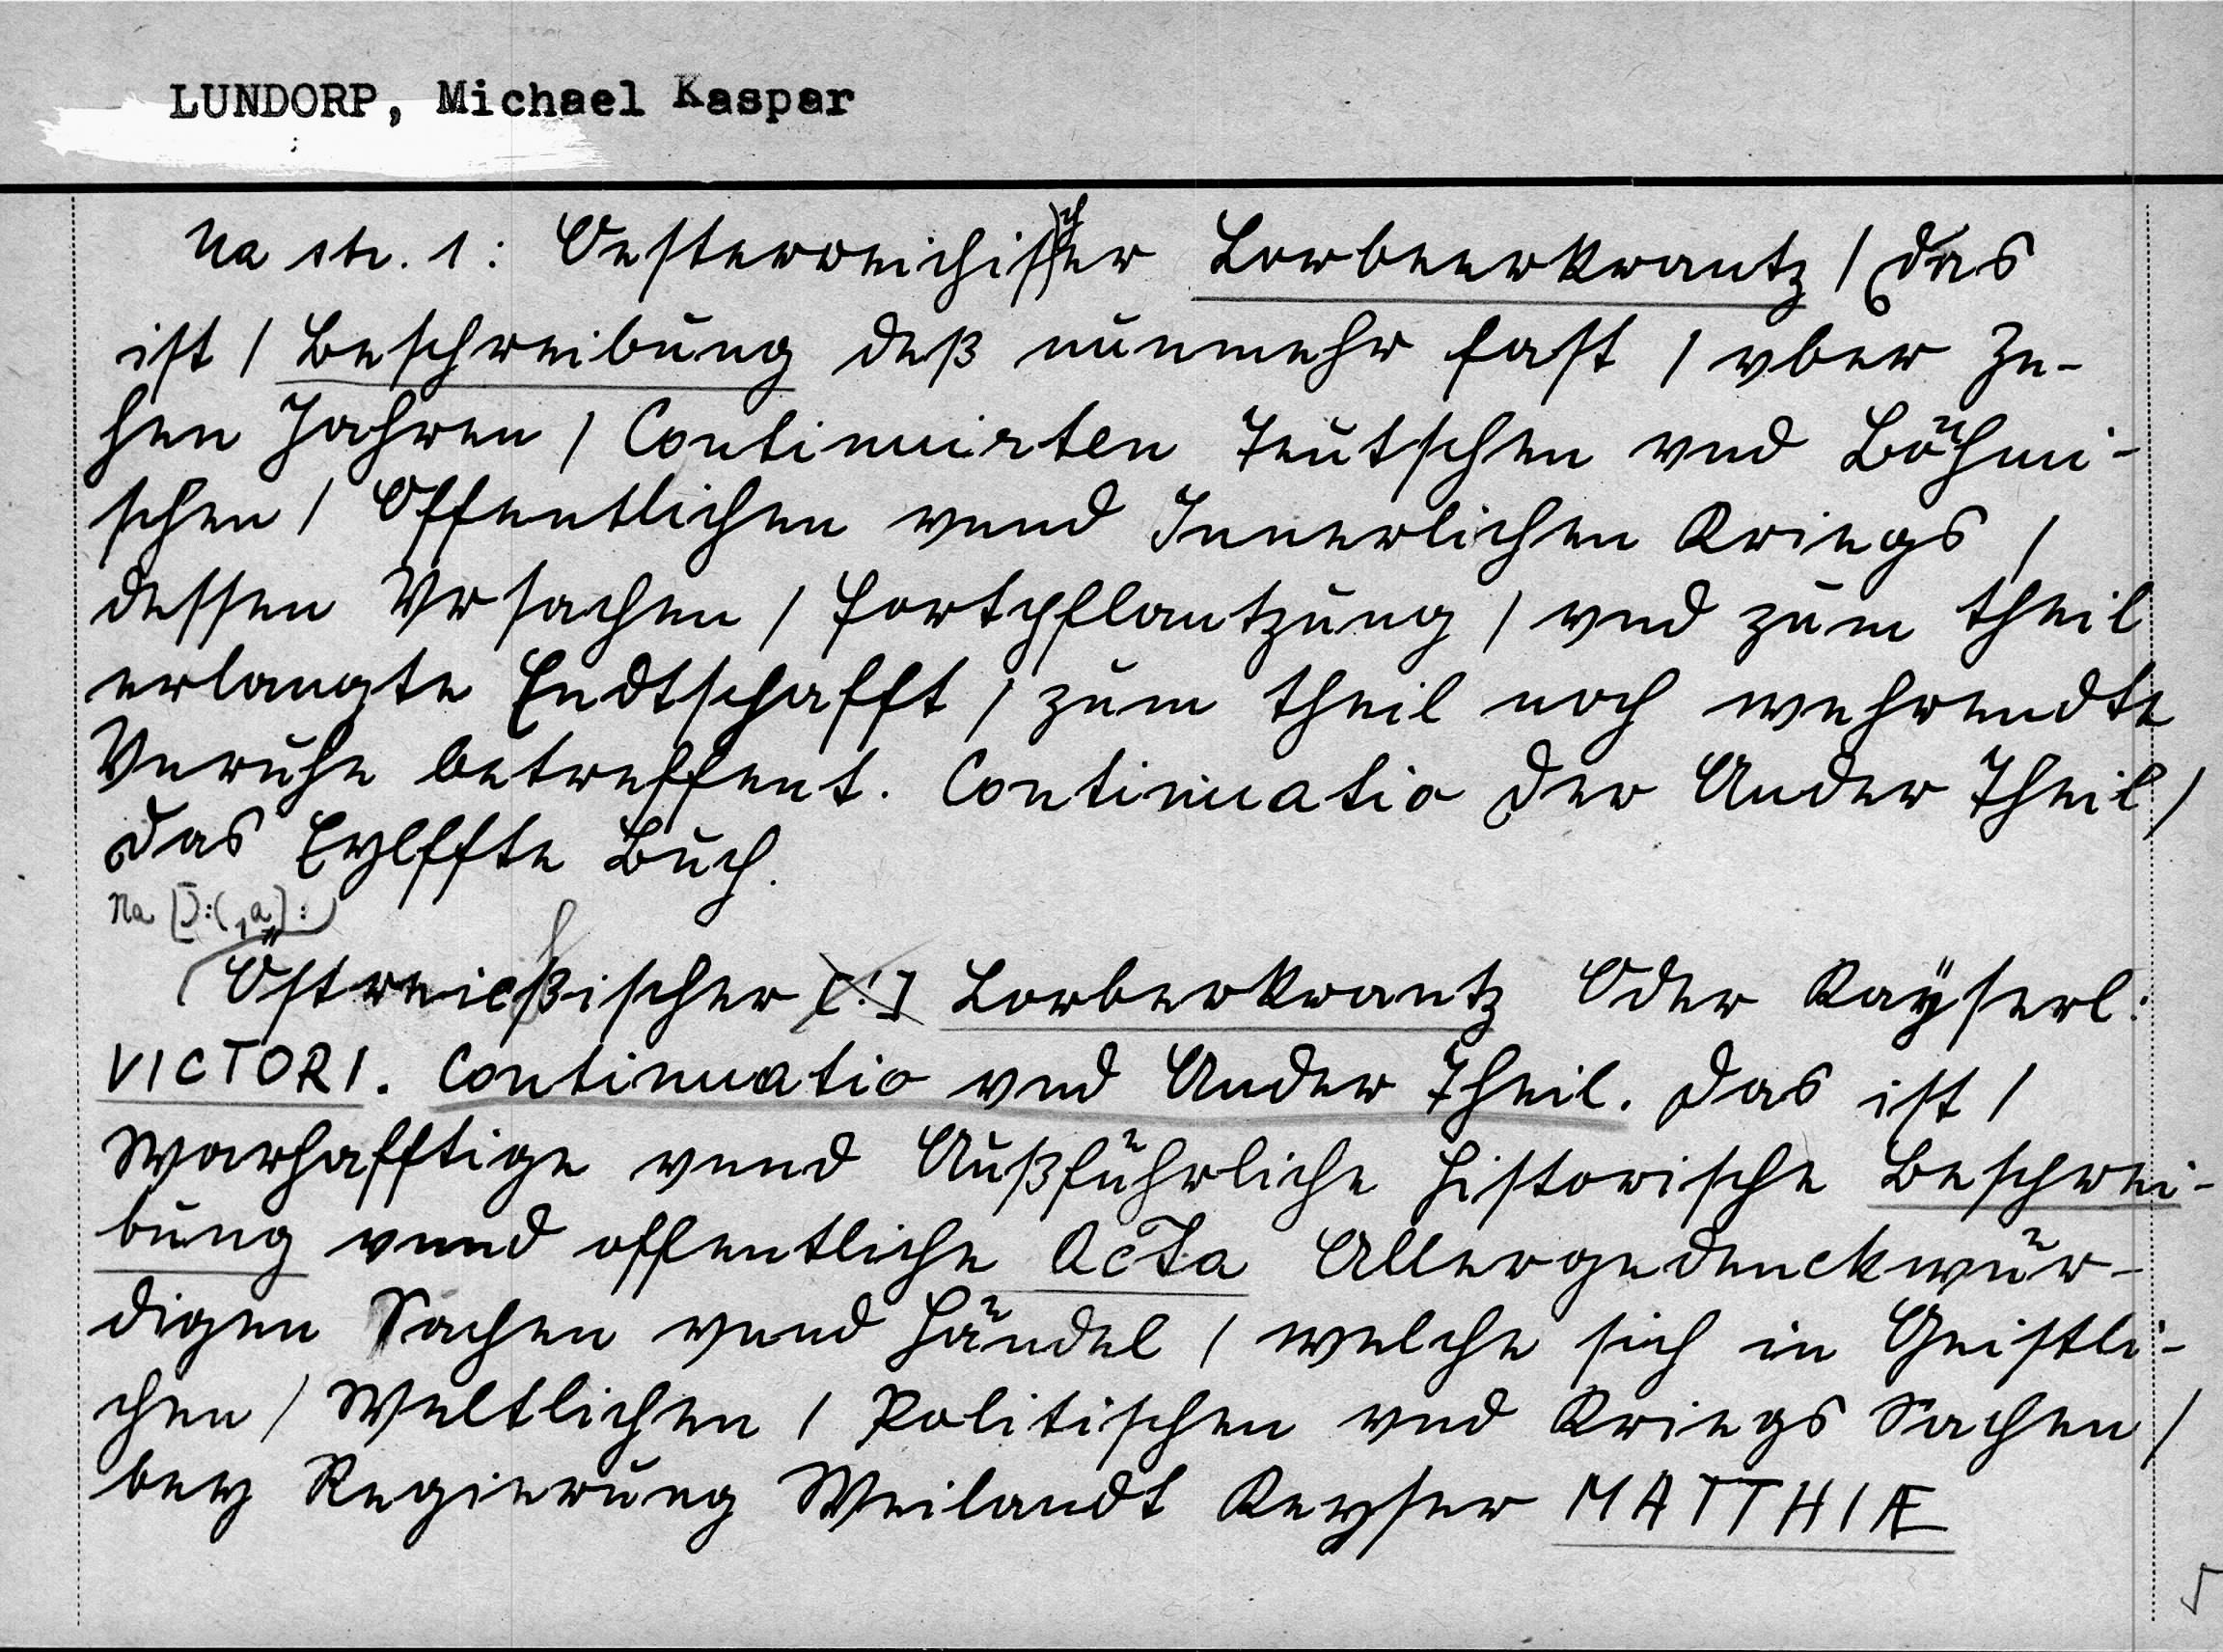 LUNDORP, Michael Kaspar
Na str. 1: Oesterreichischer Lorbeerkrantz / das
ist / Beschreibung deß nunmehr fast / vber Ze-
hen Jahren / Continuirten Teutschen vnd Boͤhmi-
schen / Offentlichen vnnd Innerlichen Kriegs /
dessen Vrsachen / Fortpflantzung / vnd zum theil
erlangte Endtschafft / zum theil noch wehrendte
Vnruhe betreffent. Continuatio der Ander Theil /
das Eylffte Buch.
Na [I]:(1a):
Östreichischer [!] Lorberkrantz Oder Kayͤserl:
VICTORI. Continuatio vnd Ander Theil. Das ist /
Warhafftige vnnd Außfuͤhrliche Historische Beschrei-
bung vnnd offentliche Acta Allergedenckwuͤr-
digen Sachen vnnd Haͤndel / welche sich in Geistli-
chen / Weltlichen / Politischen vnd Kriegs Sachen /
bey Regierung Weilandt Keyser MATTHIÆ